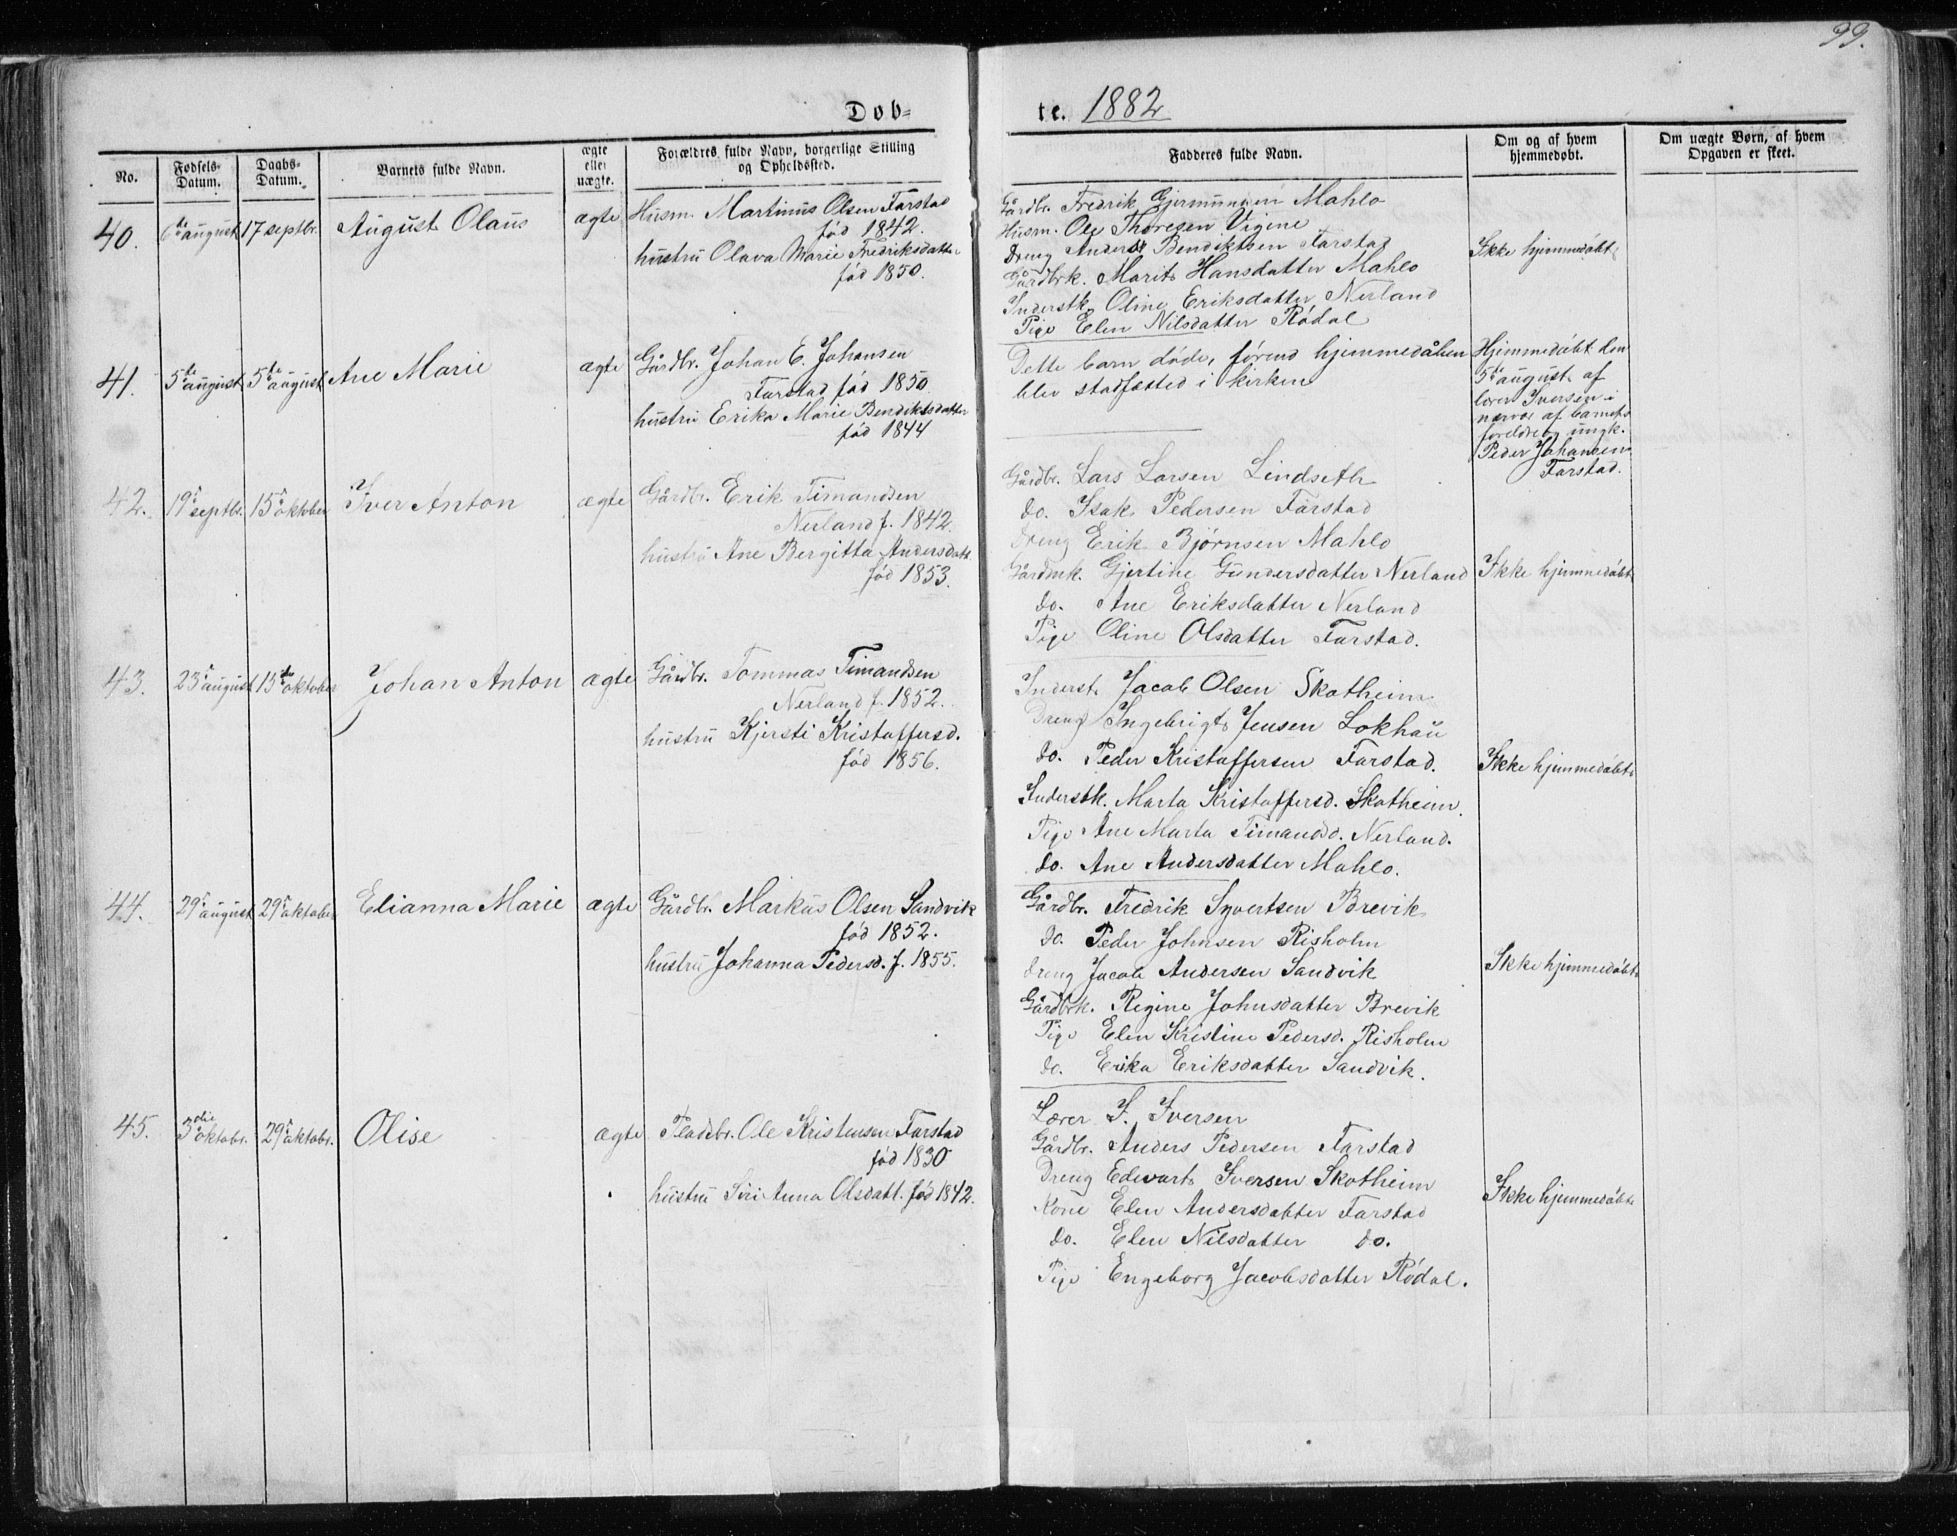 99.
Døb-
te. 1882
No.
Fødsels-
Datum.
Daabs-
Datum.
Barnets fulde Navn.
ægte
eller
uægte.
Forældres fulde Navn, borgerlige Stilling
og Opholdssted.
Fadderes fulde Navn.
Om og af hvem
hjemmedøbt.
Om uægte Børn, af hvem
Opgaven er skeet.
40. 6te august 17 septbr. August Olaus ægte
Husm. Martinus Olsen Farstad
fød 1842.
hustru Olava Marie Fredriksdatter
fød 1850.
Gårdbr. Fredrik Gjermundsen Mahlo
Husm. Ole Thoresen Vigine
Dreng Anders Bendiktsen Farstad
Gårdbrk. Marit Hansdatter Mahlo
Inderstk. Oline Eriksdatter Nerland
Pige Elen Nilsdatter Rødal
Ikke hjemmedøbt
41. 5te august 5te august Ane Marie ægte
Gårdbr. Johan E. Johansen
Farstad fød 1850
hustru Erika Marie Bendiktsdatter
fød 1844
Dette barn døde, førend hjemmedåben
blev stadfæsted i kirken
Hjemmedøbt den
5te august af
lærer Iversen i
nærvær af barnets
foreldre og ungk.
Peder Johansen
Farstad.
42. 19de septbr. 15de oktober Iver Anton ægte
Gårdbr. Erik Timandsen
Nerland f. 1842.
hustru Ane Bergitta Andersdatt.
fød 1853.
Gårdbr. Lars Larsen Lindseth
do. Isak Pedersen Farstad
Dreng Erik Bjørnsen Mahlo
Gårdmk. Gjertine Gundersdatter Nerland
do. Ane Eriksdatter Nerland
Pige Oline Olsdatter Farstad.
Ikke hjemmedøbt
43. 23de august 15de oktober Johan Anton ægte
Gårdbr. Tommas Timandsen
Nerland f. 1852.
hustru Kjersti Kristoffersd.
fød 1856.
Inderst Jacob Olsen Skotheim
Dreng Ingebrigt Jensen Lokhau
do. Peder Kristoffersen Farstad.
Inderstk. Marta Kristoffersd. Skotheim.
Pige Ane Marta Timandsd. Nerland.
do. Ane Andersdatter Mahlo.
Ikke hjemmedøbt
44. 29de august 29de oktober Elianna Marie ægte
Gårdbr. Markus Olsen Sandvik
fød 1852.
hustru Johanna Pedersd. f. 1855.
Gårdbr. Fredrik Syvertsen Brevik
do. Peder Johnsen Risholm
Dreng Jacob Andersen Sandvik
Gårdbrk. Regine Johnsdatter Brevik
Pige Elen Kristine Pedersd. Risholm
do. Erika Eriksdatter Sandvik.
Ikke hjemmedøbt
45. 3die oktobr. 29de oktobr. Olise ægte
Pladsbr. Ole Kristensen Farstad
fød 1830
hustru Siri Anna Olsdatt. fød 1842.
Lærer I. Iversen
Gårdbr. Anders Pedersen Farstad
Dreng Edevart Iversen Skotheim
Kone Elen Andersdatter Farstad
do. Elen Nilsdatter do.
Pige Engeborg Jacobsdatter Rødal.
Ikke hjemmedøbt